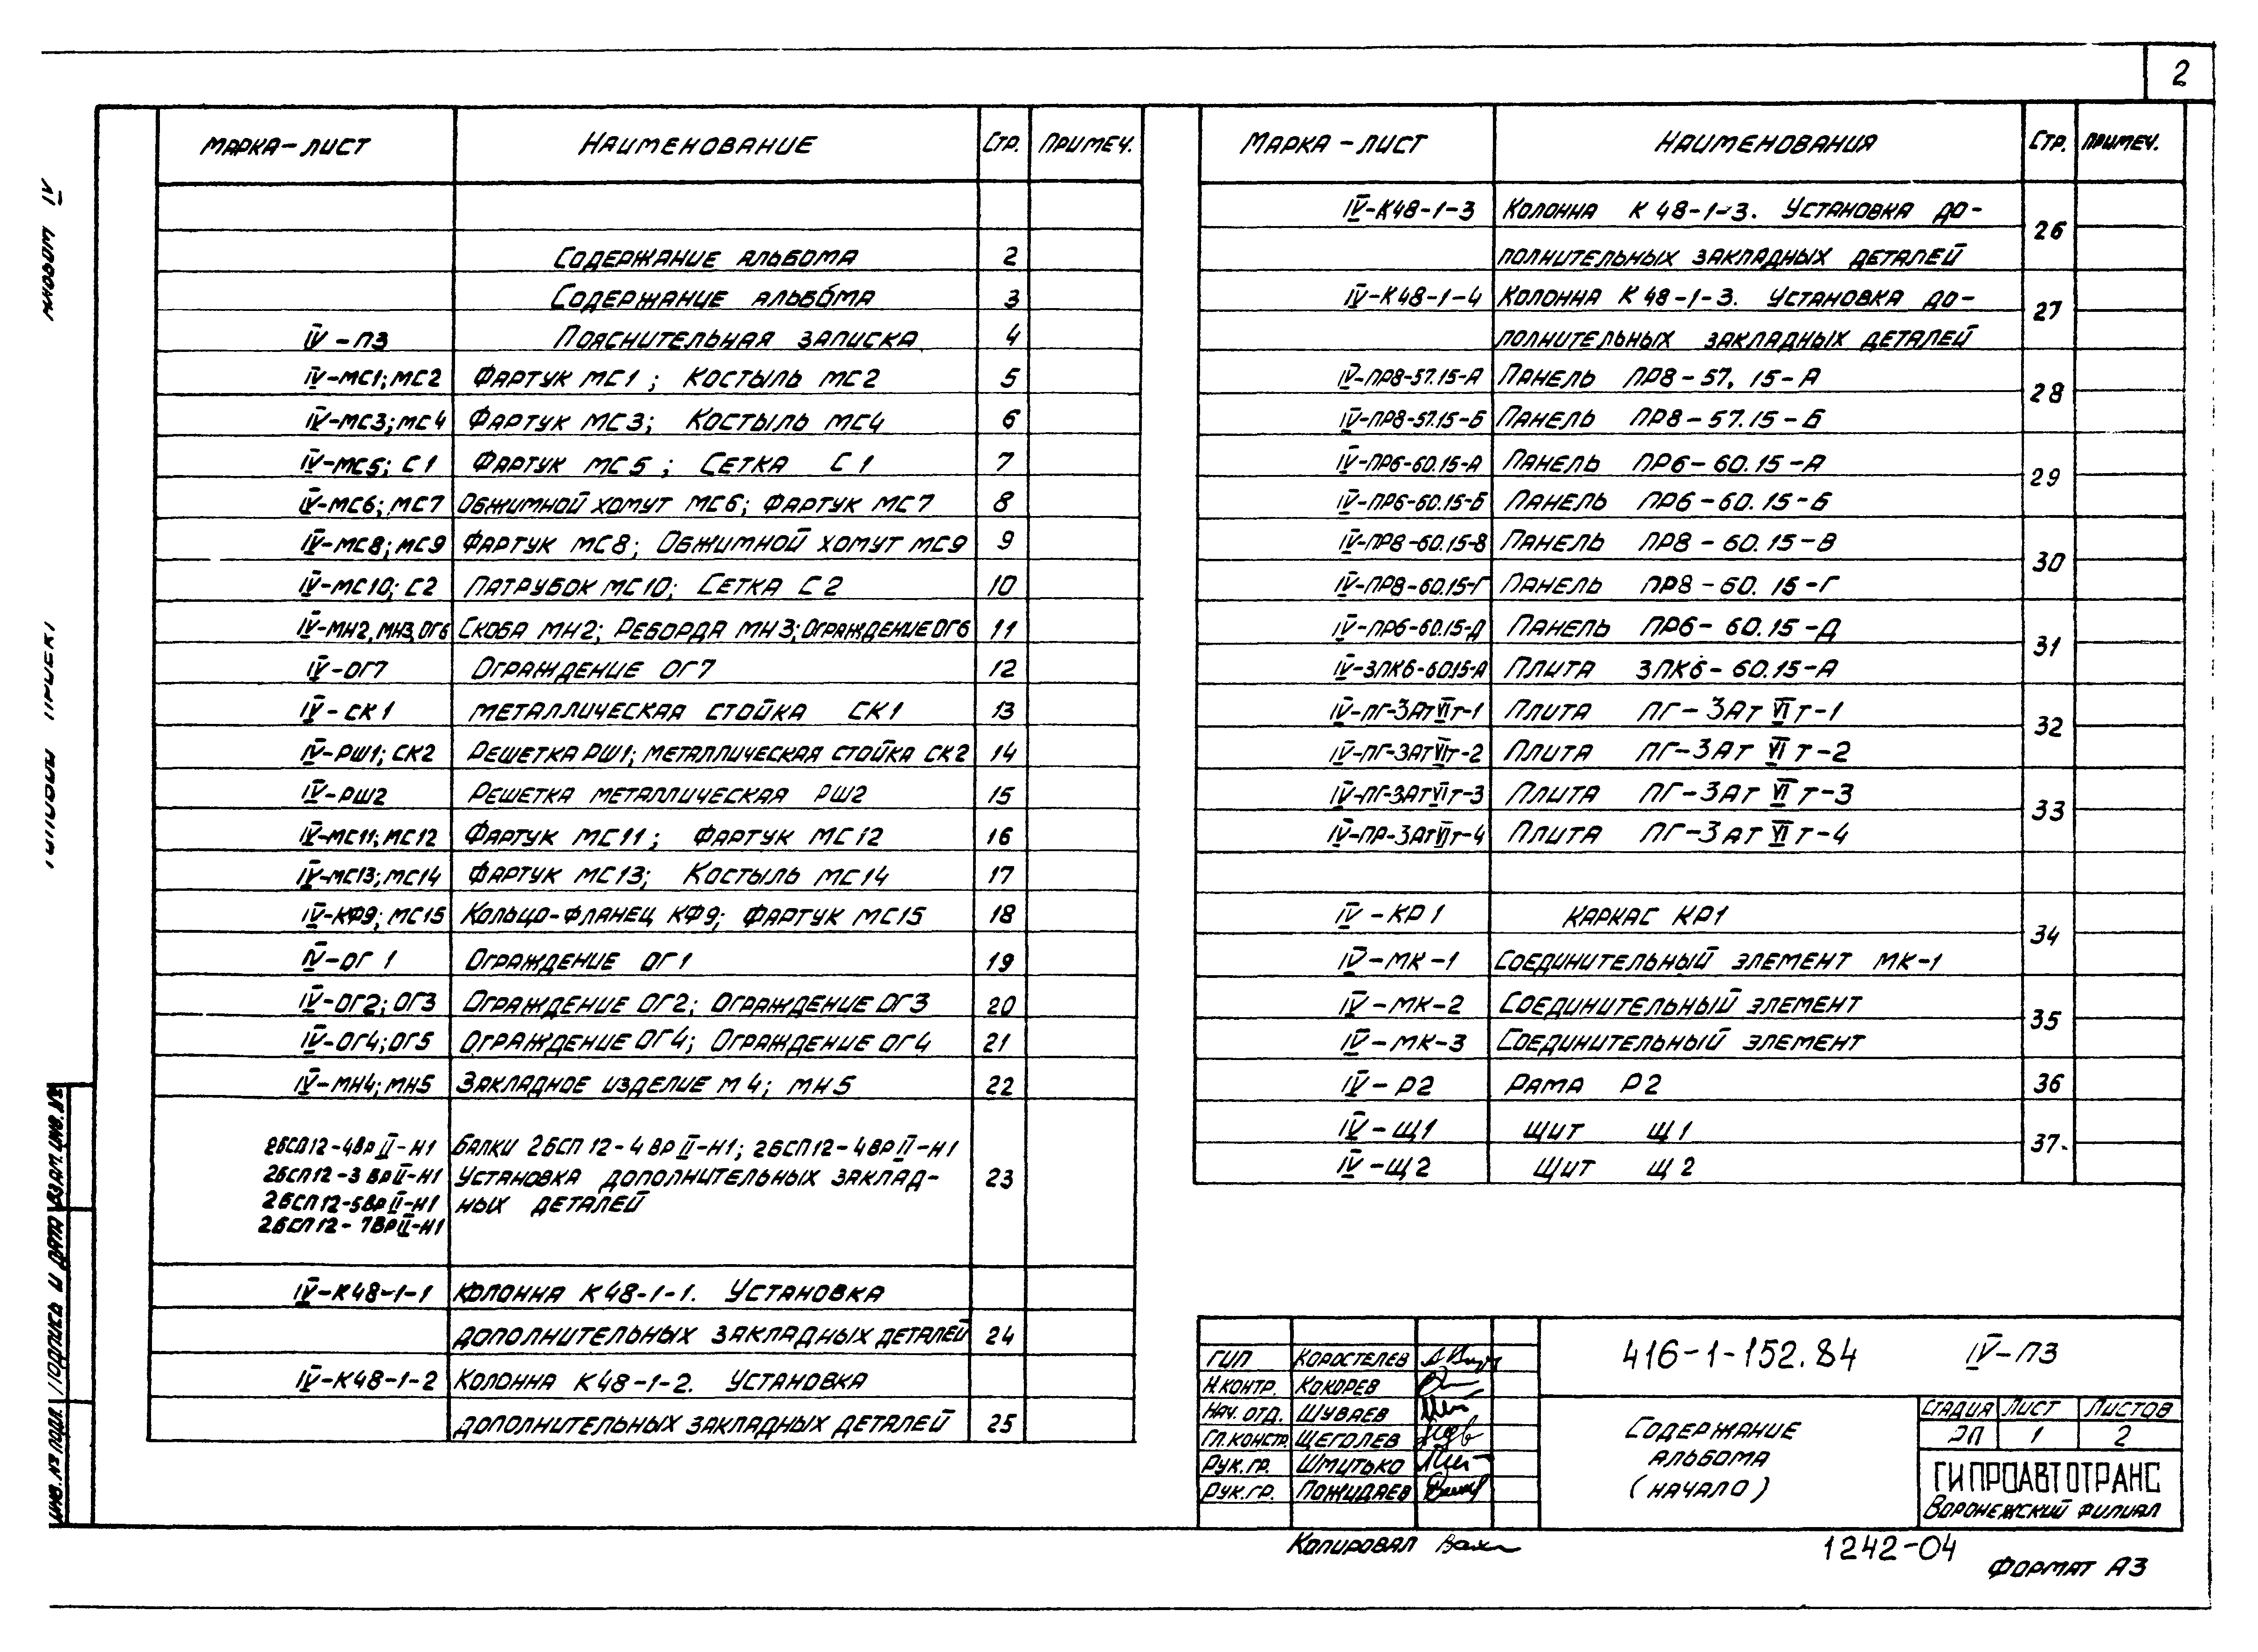 2
Альбом IV
Типовой проект
Марка-лист Наименование Стр. Примеч.
Содержание альбома 2
Содержание альбома 3
IV-ПЗ Пояснительная записка 4
IV-МС1; МС2 Фартук МС1; Костыль МС2 5
IV-МС3; МС4 Фартук МС3; Костыль МС4 6
IV-МС5; С1 Фартук МС5; Сетка С1 7
IV-МС6; МС7 Обжимной хомут МС6; Фартук МС7 8
IV-МС8; МС9 Фартук МС8; Обжимной хомут МС9 9
IV-МС10; С2 Патрубок МС10; Сетка С2 10
IV-МН2, МН3, ОГ6 Скоба МН2; Реборда МН3; Ограждение ОГ6 11
IV-ОГ7 Ограждение ОГ7 12
IV-СК1 Металлическая стойка СК1 13
IV-РШ1; СК2 Решетка РШ1; Металлическая стойка СК2 14
IV-РШ2 Решетка металлическая РШ2 15
IV-МС11; МС12 Фартук МС11; Фартук МС12 16
IV-МС13; МС14 Фартук МС13; Костыль МС14 17
IV-КФ9; МС15 Кольцо-фланец КФ9; Фартук МС15 18
IV-ОГ1 Ограждение ОГ1 19
IV-ОГ2; ОГ3 Ограждение ОГ2; Ограждение ОГ3 20
IV-ОГ4; ОГ5 Ограждение ОГ4; Ограждение ОГ4 21
IV-МН4; МН5 Закладное изделие М4; МН5 22
2БСП12-4ВрII-Н1 Балки 2БСП12-4ВрII-Н1; 2БСП12-4ВрII-Н1
2БСП12-3ВрII-Н1 Установка дополнительных заклад- 23
2БСП12-5ВрII-Н1 ных деталей
2БСП12-7ВрII-Н1
IV-К48-1-1 Колонна К48-1-1. Установка
дополнительных закладных деталей 24
IV-К48-1-2 Колонна К48-1-2. Установка
дополнительных закладных деталей 25
Марка-лист Наименования Стр. Примеч.
IV-К48-1-3 Колонна К48-1-3. Установка до-
26
полнительных закладных деталей
IV-К48-1-4 Колонна К48-1-3. Установка до-
27
полнительных закладных деталей
IV-ПР8-57.15-А Панель ПР8-57,15-А
28
IV-ПР8-57.15-Б Панель ПР8-57.15-Б
IV-ПР6-60.15-А Панель ПР6-60.15-А
29
IV-ПР6-60.15-Б Панель ПР6-60.15-Б
IV-ПР8-60.15-В Панель ПР8-60.15-В
30
IV-ПР8-60.15-Г Панель ПР8-60.15-Г
IV-ПР6-60.15-Д Панель ПР6-60.15-Д
31
IV-3ПК6-60.15-А Плита 3ПК6-60.15-А
IV-ПГ-3АтVIт-1 Плита ПГ-3АтVIт-1
32
IV-ПГ-3АтVIт-2 Плита ПГ-3АтVIт-2
IV-ПГ-3АтVIт-3 Плита ПГ-3АтVIт-3
33
IV-ПР-3АтVIт-4 Плита ПГ-3АтVIт-4
IV-КР1 Каркас КР1
34
IV-МК-1 Соединительный элемент МК-1
IV-МК-2 Соединительный элемент
35
IV-МК-3 Соединительный элемент
IV-Р2 Рама Р2 36
IV-Щ1 Щит Щ1
37
IV-Щ2 Щит Щ2
Инв. № подл. Подпись и дата Взам. инв. №
ГИП Коростелев
Н.контр. Кокорев
Нач. отд. Шуваев
Гл.констр. Щеголев
Рук.гр. Шмитько
Рук.гр. Пожидаев
416-1-152.84 IV-ПЗ
Содержание
альбома
(начало)
Стадия Лист Листов
РП 1 2
ГИПРОАВТОТРАНС
Воронежский филиал
Копировал
1242-04
Формат А3